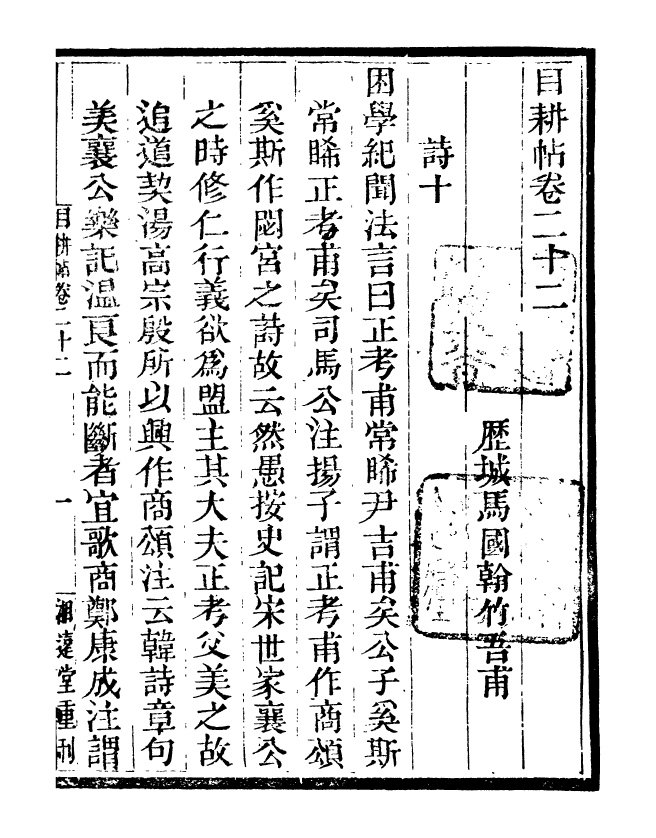 目耕帖卷二十二
歷城馬國翰竹吾甫
詩十
困學紀聞法言曰正考甫常睎尹吉甫矣公子奚斯
常睎正考甫矣司馬公注揚子謂正考甫作商頌
奚斯作閟宮之詩故云然愚按史記宋世家襄公
之時修仁行義欲爲盟主其大夫正考父美之故
追道契湯高宗殷所以興作商頌注云韓詩章句
美襄公樂記溫良而能斷者宜歌商鄭康成注謂
目耕帖卷二十二 一 湘遠堂重刊